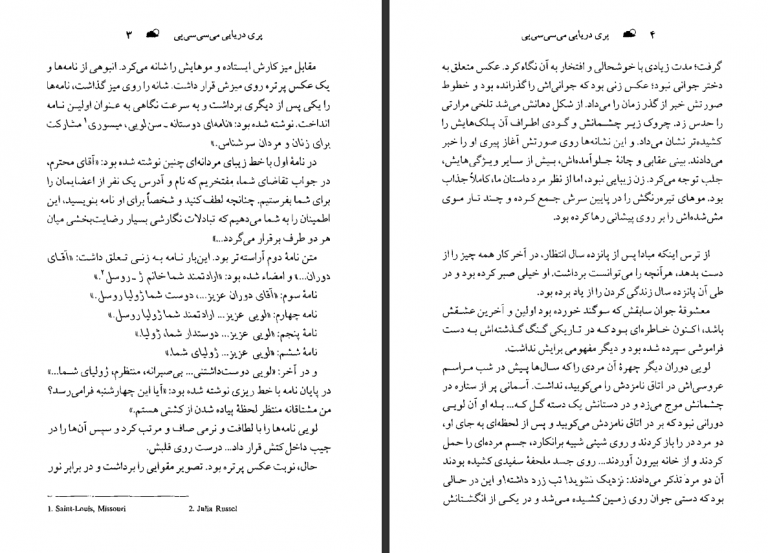 پری دریایی می‌سی‌سی‌پی ۳
مقابل میز کارش ایستاده و موهایش را شانه می‌کرد. انبوهی از نامه‌ها و
یک عکس پرتره روی میزش قرار داشت. شانه را روی میز گذاشت، نامه‌ها
را یکی پس از دیگری برداشت و به سرعت نگاهی به عنوان اولین نامه
انداخت. نوشته شده بود: «نامه‌ای دوستانه ـ سن‌لویی، میسوری¹ مشارکت
برای زنان و مردان سرشناس.»
در نامۀ اول با خط زیبای مردانه‌ای چنین نوشته شده بود: «آقای محترم،
در جواب تقاضای شما، مفتخریم که نام و آدرس یک نفر از اعضایمان را
برای شما بفرستیم. چنانچه لطف کنید و شخصاً برای او نامه بنویسید، این
اطمینان را به شما می‌دهیم که تبادلات نگارشی بسیار رضایت‌بخشی میان
هر دو طرف برقرار می‌گردد...»
متن نامۀ دوم آراسته‌تر بود. این‌بار نامه به زنی تعلق داشت: «آقای
دوران...» و امضاء شده بود: «ارادتمند شما خانم ژ ـ روسل².»
نامۀ سوم: «آقای دوران عزیز... دوست شما ژولیا روسل.»
نامۀ چهارم: «لویی عزیز... ارادتمند شما ژولیا روسل.»
نامۀ پنجم: «لویی عزیز... دوستدار شما، ژولیا.»
نامۀ ششم: «لویی عزیز... ژولیای شما.»
و در آخر: «لویی دوست‌داشتنی... بی‌صبرانه، منتظرم، ژولیای شما...»
در پایان نامه با خط ریزی نوشته شده بود: «آیا این چهارشنبه فرامی‌رسد؟
من مشتاقانه منتظر لحظۀ پیاده شدن از کشتی هستم.»
لویی نامه‌ها را با لطافت و نرمی صاف و مرتب کرد و سپس آن‌ها را در
جیب داخل کتش قرار داد... درست روی قلبش.
حال، نوبت عکس پرتره بود. تصویر مقوایی را برداشت و در برابر نور
1. Saint-Louis, Missouri 2. Julia Russel
۴ پری دریایی می‌سی‌سی‌پی
گرفت؛ مدت زیادی با خوشحالی و افتخار به آن نگاه کرد. عکس متعلق به
دختر جوانی نبود؛ عکس زنی بود که جوانی‌اش را گذرانده بود و خطوط
صورتش خبر از گذر زمان را می‌داد. از شکل دهانش می‌شد تلخی مرارتی
را حدس زد. چروک زیر چشمانش و گودی اطراف آن پلک‌هایش را
کشیده‌تر نشان می‌داد. و این نشانه‌ها روی صورتش آغاز پیری او را خبر
می‌دادند. بینی عقابی و چانۀ جلوآمده‌اش، بیش از سایر ویژگی‌هایش،
جلب توجه می‌کرد. زن زیبایی نبود، اما از نظر مرد داستان ما، کاملاً جذاب
بود. موهای تیره‌رنگش را در پایین سرش جمع کرده و چند تار موی
مش‌شده‌اش را بر روی پیشانی رها کرده بود.
از ترس اینکه مبادا پس از پانزده سال انتظار، در آخر کار همه چیز را از
دست بدهد، هرآنچه را می‌توانست برداشت. او خیلی صبر کرده بود و در
طی آن پانزده سال زندگی کردن را از یاد برده بود.
معشوقۀ جوان سابقش که سوگند خورده بود اولین و آخرین عشقش
باشد، اکنون خاطره‌ای بود که در تاریکی گنگ گذشته‌اش به دست
فراموشی سپرده شده بود و دیگر مفهومی برایش نداشت.
لویی دوران دیگر چهرۀ آن مردی را که سال‌ها پیش در شب مراسم
عروسی‌اش در اتاق نامزدش را می‌کوبید، نداشت. آسمانی پر از ستاره در
چشمانش موج می‌زد و در دستانش یک دسته گل که... بله او آن لویی
دورانی نبود که بر در اتاق نامزدش می‌کوبید و پس از لحظه‌ای به جای او،
دو مرد در را باز کردند و روی شیئی شبیه برانکارد، جسم مرده‌ای را حمل
کردند و از خانه بیرون آوردند... روی جسد ملحفۀ سفیدی کشیده بودند
آن دو مرد تذکر می‌دادند: نزدیک نشوید! تب زرد داشته! و این در حالی
بود که دستی جوان روی زمین کشیده می‌شد و در یکی از انگشتانش